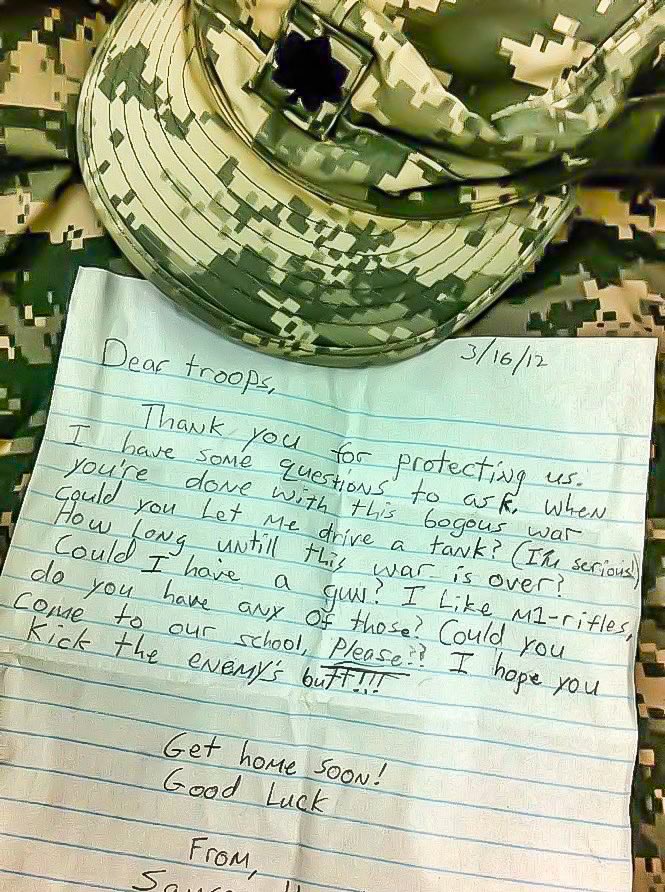 3/16/12
Dear troops,
Thank you for protecting us.
I have some questions to ask. When
you're done with this bogous war
could you let me drive a tank? (I'm serious!)
How long untill this war is over?
Could I have a gun? I like M1-rifles,
do you have any of those? Could you
come to our school, Please?? I hope you
Kick the enemy's butt!!!
Get home soon!
Good Luck
From,